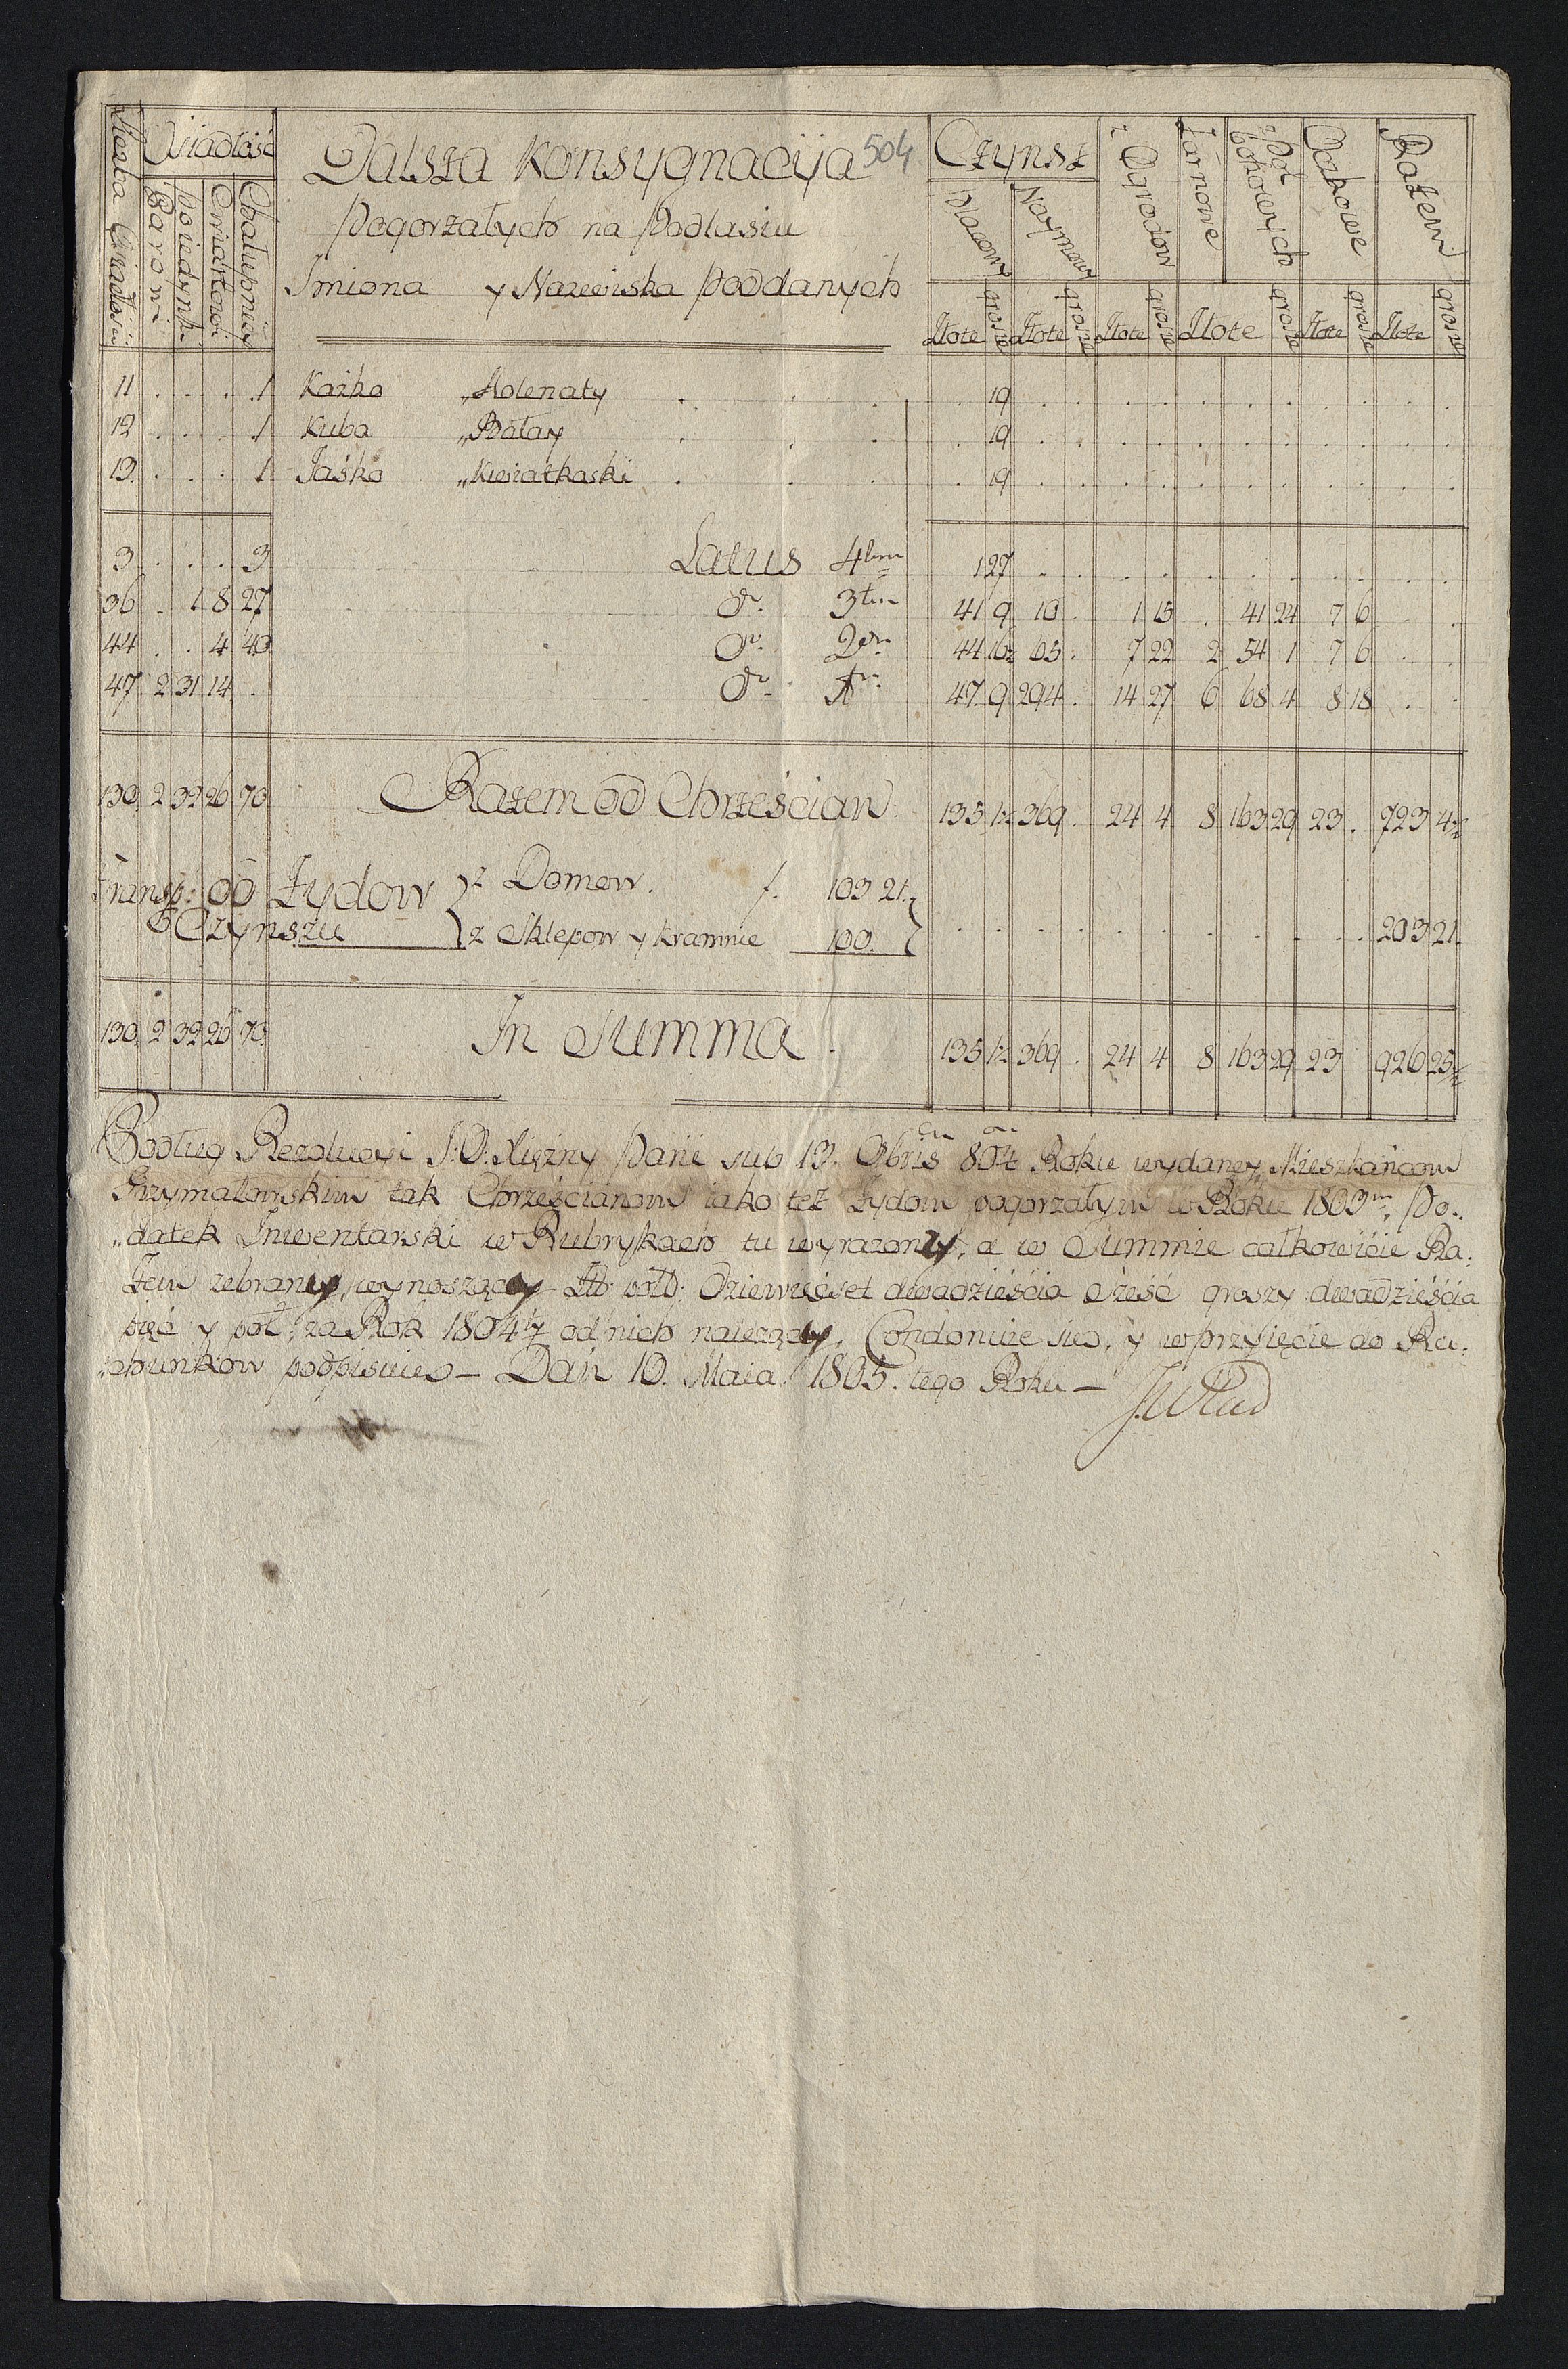 Liczba Osiadłości
Osiadłość
Parowi
Poiedynk:
Cwiartkowi
Chałupnicy
Dalsza Konsygnacyia 504
Pogorzałych na Podlasiu
Imiona y Nazwiska Poddanych
Czynsz
Placow
Naymow
z Ogrodow
Żarnowe
z Pół bokowych
Dakowe
Razem
Złote grosze Złote grosze Złote grosze Złote grosze Złote grosze Złote grosze
11 . . . . 1 Kaźko „Holenaty . . . . 19
12 . . . . 1 Kuba „Bałay . . . . 19
13. . . . . 1 Jaśko „Kwiatkoski . . . . 19
3 . . . . 3 Latus 4tum 1 27
36 . 1 8 27 do. 3tum 41 9 10 . 1 15 . 41 24 7 6 . .
44 . . 4 40 do. 2dum 44 16½ 65 . 7 22 2 54 1 7 6 . .
47 2 31 14 . do. 1um 47 9 294 . 14 27 6 68 4 8 18 . .
130. 2 32 26 70 Razem od Chrześcian. 135 1½ 369 . 24 4 8 163 29 23 . 723 4½
Transp: od Żydow z Domow. f. 103 21.
Czynszu z Sklepow y Kramnic 100. . . . 203 21.
130. 2 32 26 70. In Summa. 135 1½ 369 . 24 4 8 163 29 23 926 25½
Podług Rezolucyi J:O: Xiężny Pani sub 13. Obris 804 Roku wydaney, Mieszkańcow
Grzymałowskim tak Chrześcianom iako też Żydom pogorzałym w Roku 1803m, Po„
„datek Inwentarski w Rubrykach tu wyrazony, a w Summie całkowicie Ra:
zem zebrany, wynoszący Złt: pold: Dziewięćset dwadzieścia sześć groszy dwadzieścia
pięć y pół, za Rok 1804ty od nich należący, Condonuie się, y w przyięcie do Ra:
„chunkow podpisuię – Dań 10. Maia 1805. tego Roku –